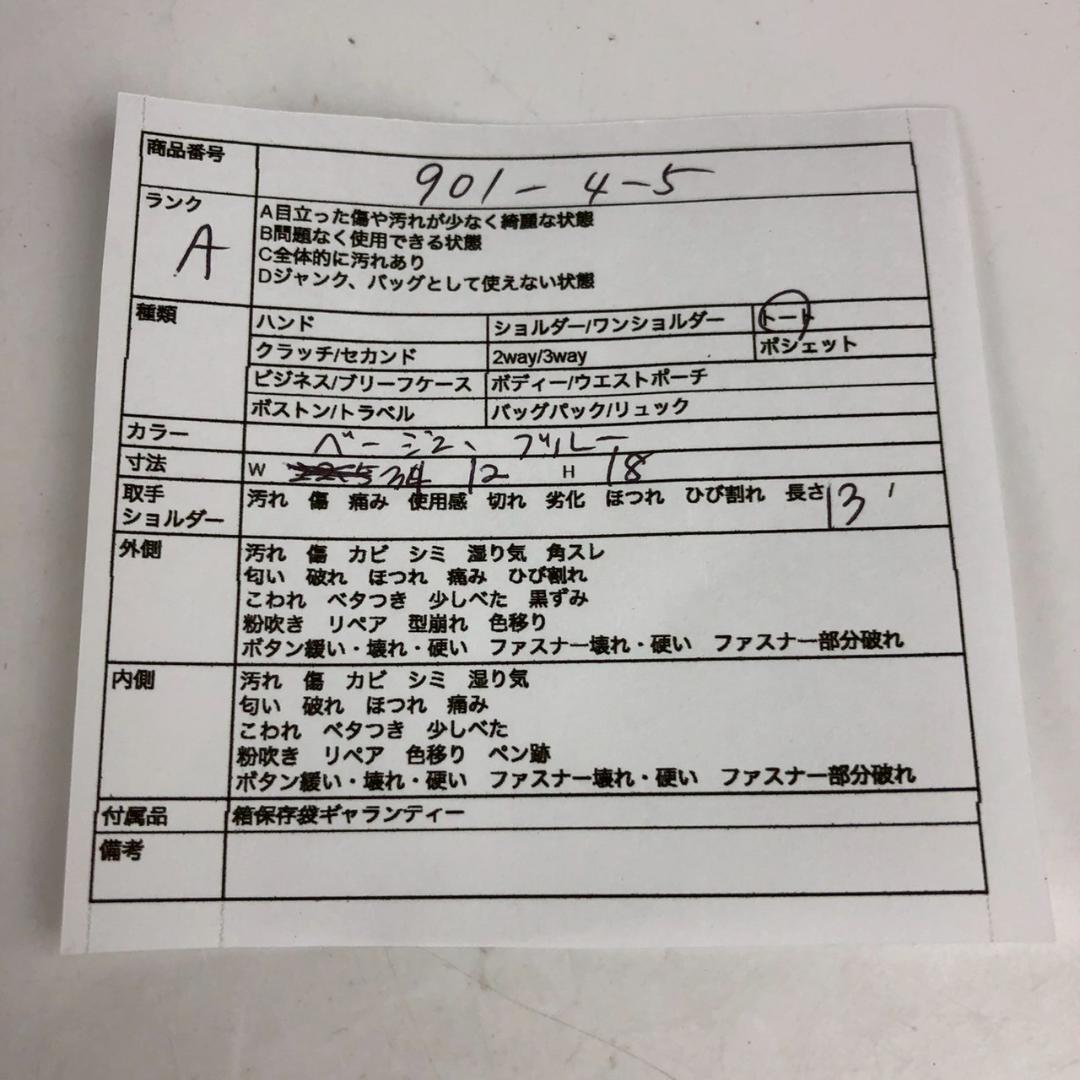 商品番号 901-4-5
ランク A
A目立った傷や汚れが少なく綺麗な状態
B問題なく使用できる状態
C全体的に汚れあり
Dジャンク、バッグとして使えない状態
種類
ハンド ショルダー/ワンショルダー トート
クラッチ/セカンド 2way/3way ポシェット
ビジネス/ブリーフケース ボディー/ウエストポーチ
ボストン/トラベル バッグパック/リュック
カラー ベージュ、ブルー
寸法 W 34 12 H 18
取手
ショルダー
汚れ 傷 痛み 使用感 切れ 劣化 ほつれ ひび割れ 長さ 13
外側
汚れ 傷 カビ シミ 湿り気 角スレ
匂い 破れ ほつれ 痛み ひび割れ
こわれ ベタつき 少しべた 黒ずみ
粉吹き リペア 型崩れ 色移り
ボタン緩い・壊れ・硬い ファスナー壊れ・硬い ファスナー部分破れ
内側
汚れ 傷 カビ シミ 湿り気
匂い 破れ ほつれ 痛み
こわれ ベタつき 少しべた
粉吹き リペア 色移り ペン跡
ボタン緩い・壊れ・硬い ファスナー壊れ・硬い ファスナー部分破れ
付属品 箱保存袋ギャランティー
備考